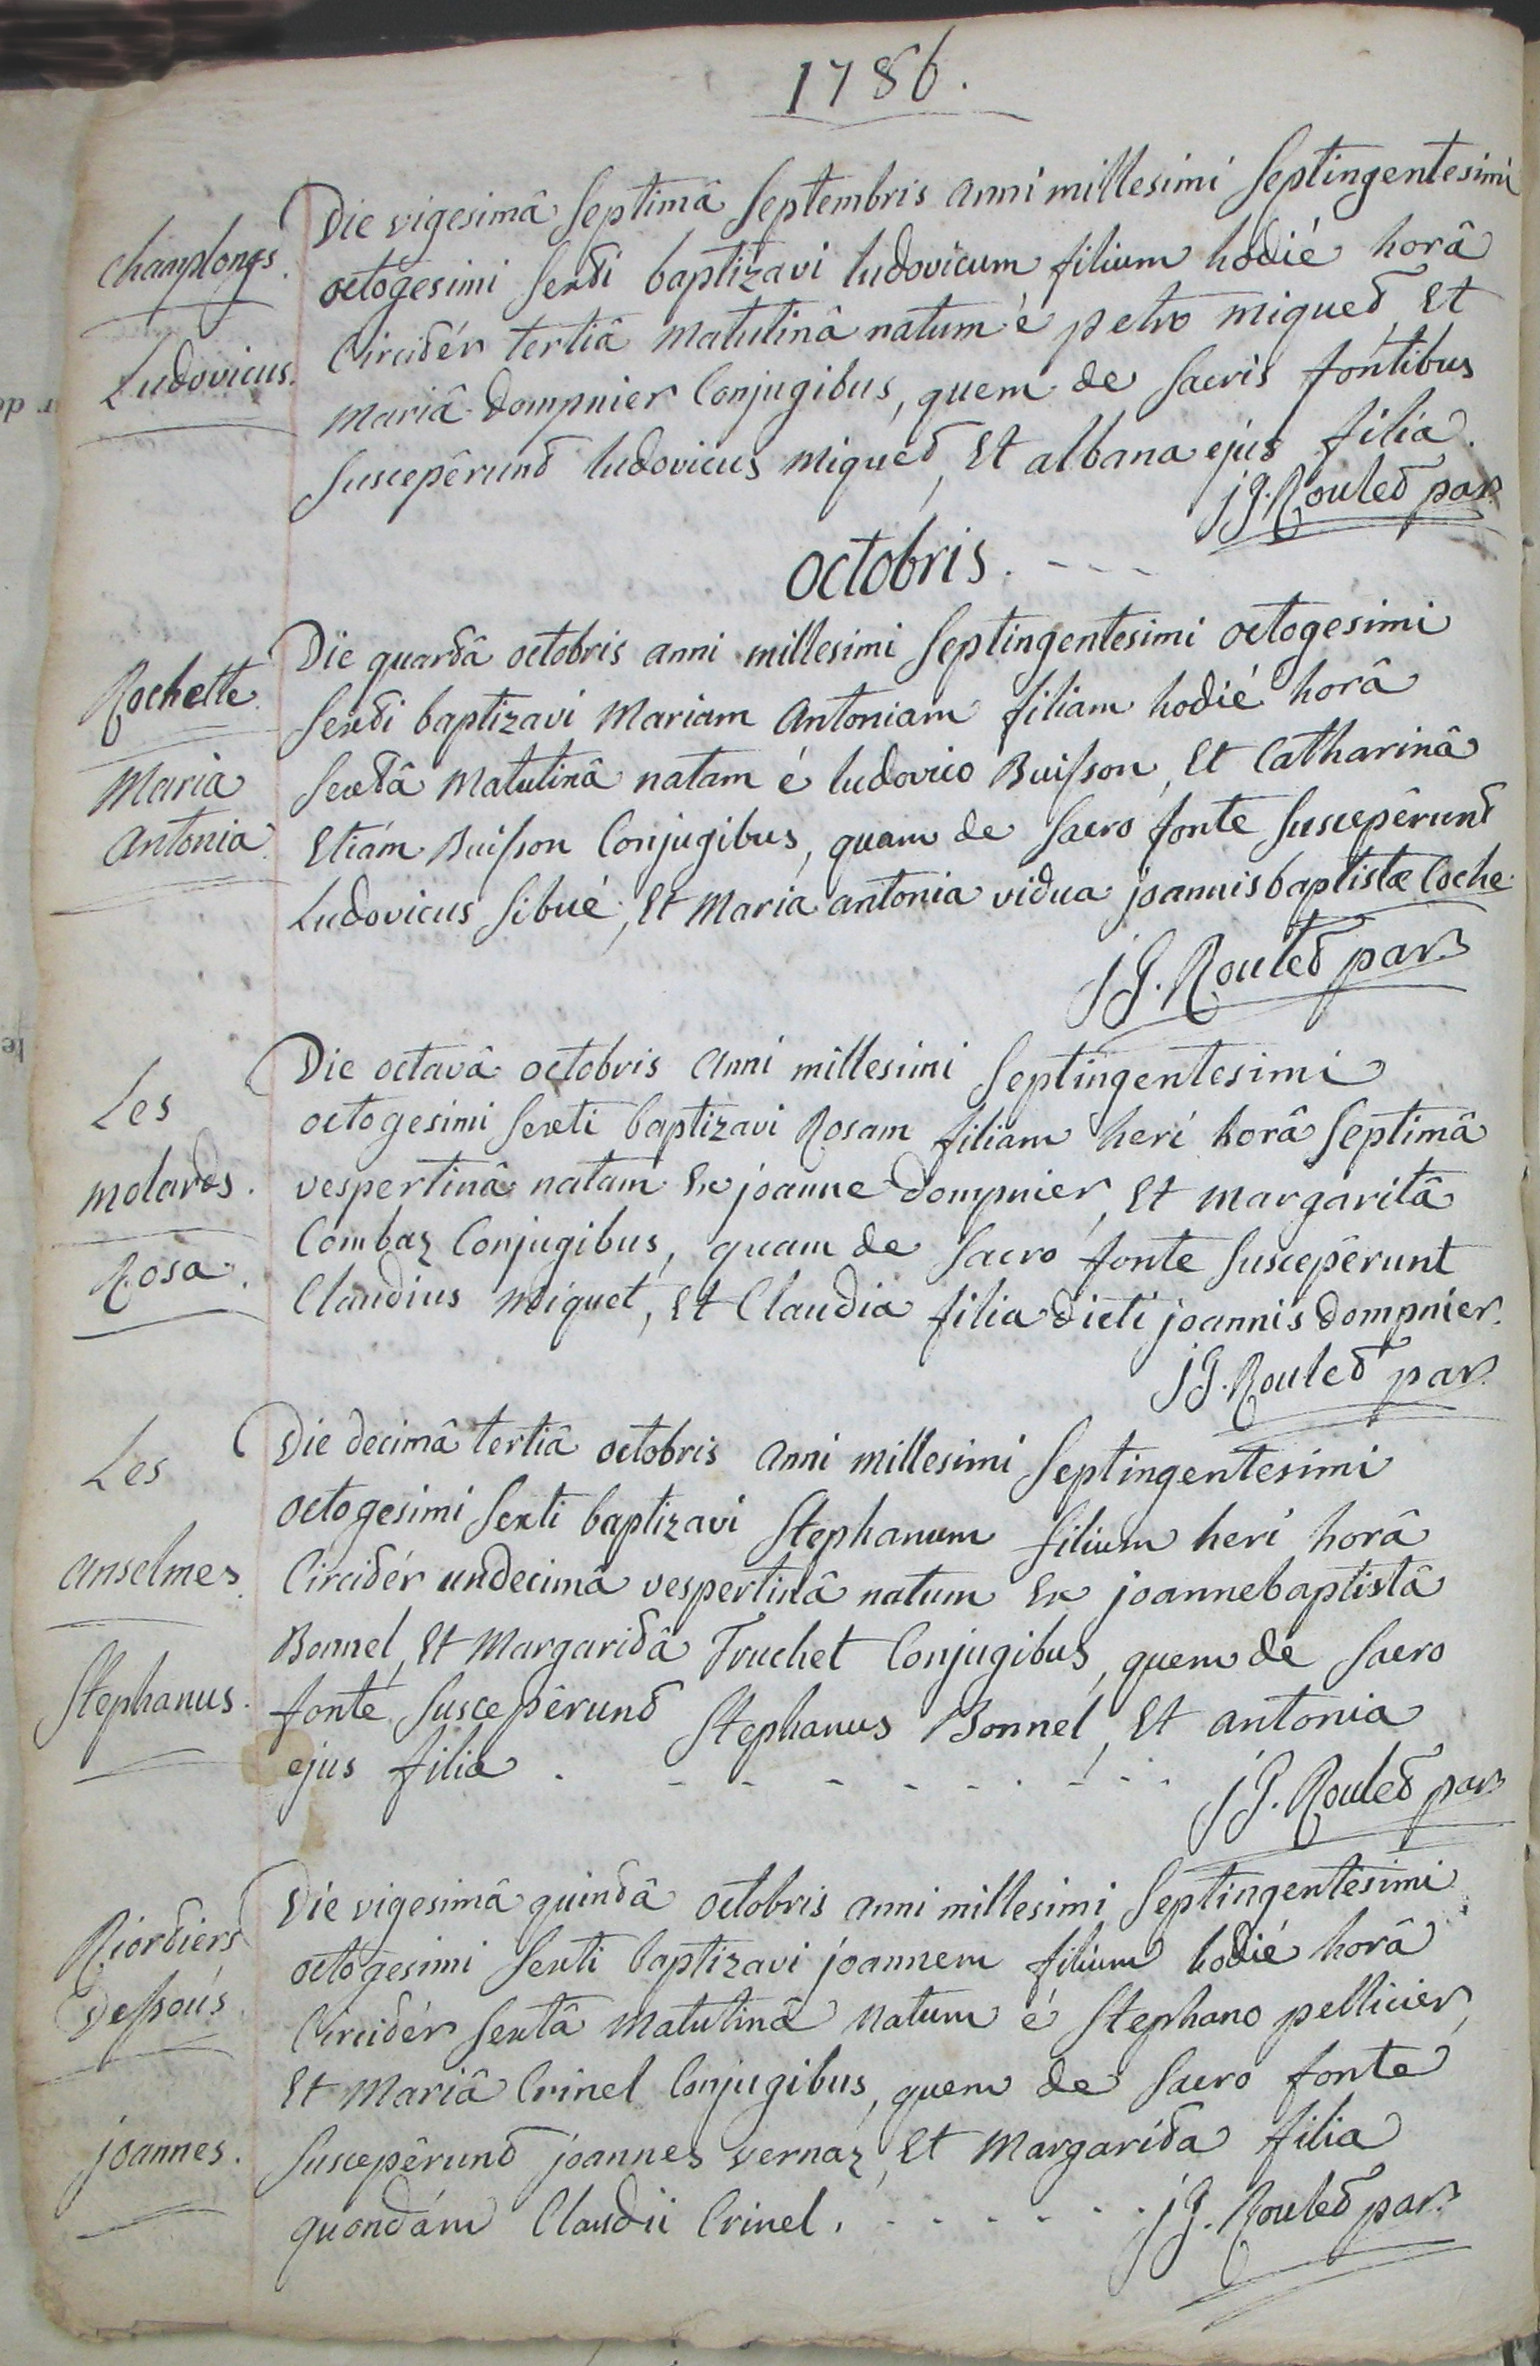 1786.
Champlongs.
Ludovicus.
Die vigesimâ Septimâ Septembris anni millesimi Septingentesimi
octogesimi Sexti baptizavi ludovicum filium hodié horâ
Circitér tertiâ matutinâ natum é petro miquet, Et
mariâ Dompnier Conjugibus, quem de Sacris fontibus
Suscepêrunt ludovicus miquet, Et albana ejus filia.
j J. Roulet par.
octobris. - - -
Rochette.
Maria
antonia.
Die quartâ octobris anni millesimi Septingentesimi octogesimi
Sexti baptizavi Mariam antoniam filiam hodié horâ
Sextâ Matutinâ natam é ludovico Buisson, Et Catharinâ
Etiám Buisson Conjugibus, quam de Sacro fonte Suscepêrunt
Ludovicus Sibué, Et Maria antonia vidua joannisbaptistæ Coche.
j J. Roulet par.
Les
molards.
Rosa.
Die octavâ octobris anni millesimi Septingentesimi
octogesimi Sexti baptizavi Rosam filiam heri horâ Septimâ
vespertinâ natam Ex joanne Dompnier, Et margaritâ
Combaz Conjugibus, quam de Sacro fonte Suscepêrunt
Claudius miquet, Et Claudia filia dicti joannis Dompnier.
j J. Roulet par.
Les
anselmes.
Stephanus.
Die decimâ tertiâ octobris anni millesimi Septingentesimi
octogesimi Sexti baptizavi Stephanum filium heri horâ
Circitér undecimâ vespertinâ natum Ex joannebaptistâ
Bonnel, Et Margaritâ Truchet Conjugibus, quem de Sacro
fonte Suscepêrunt Stephanus Bonnel, Et antonia
ejus filia. - - - - - - - -
j J. Roulet par.
Riortiers
Dessous.
joannes.
Die vigesimâ quintâ octobris anni millesimi Septingentesimi
octogesimi Sexti baptizavi joannem filium hodié horâ
Circitér Sextâ Matutinâ natum é Stephano pellicier,
Et Mariâ Crinel Conjugibus, quem de Sacro fonte
Suscepêrunt joannes vernaz, Et Margarita filia
quondám Claudii Crinel. - - - - - -
j J. Roulet par.